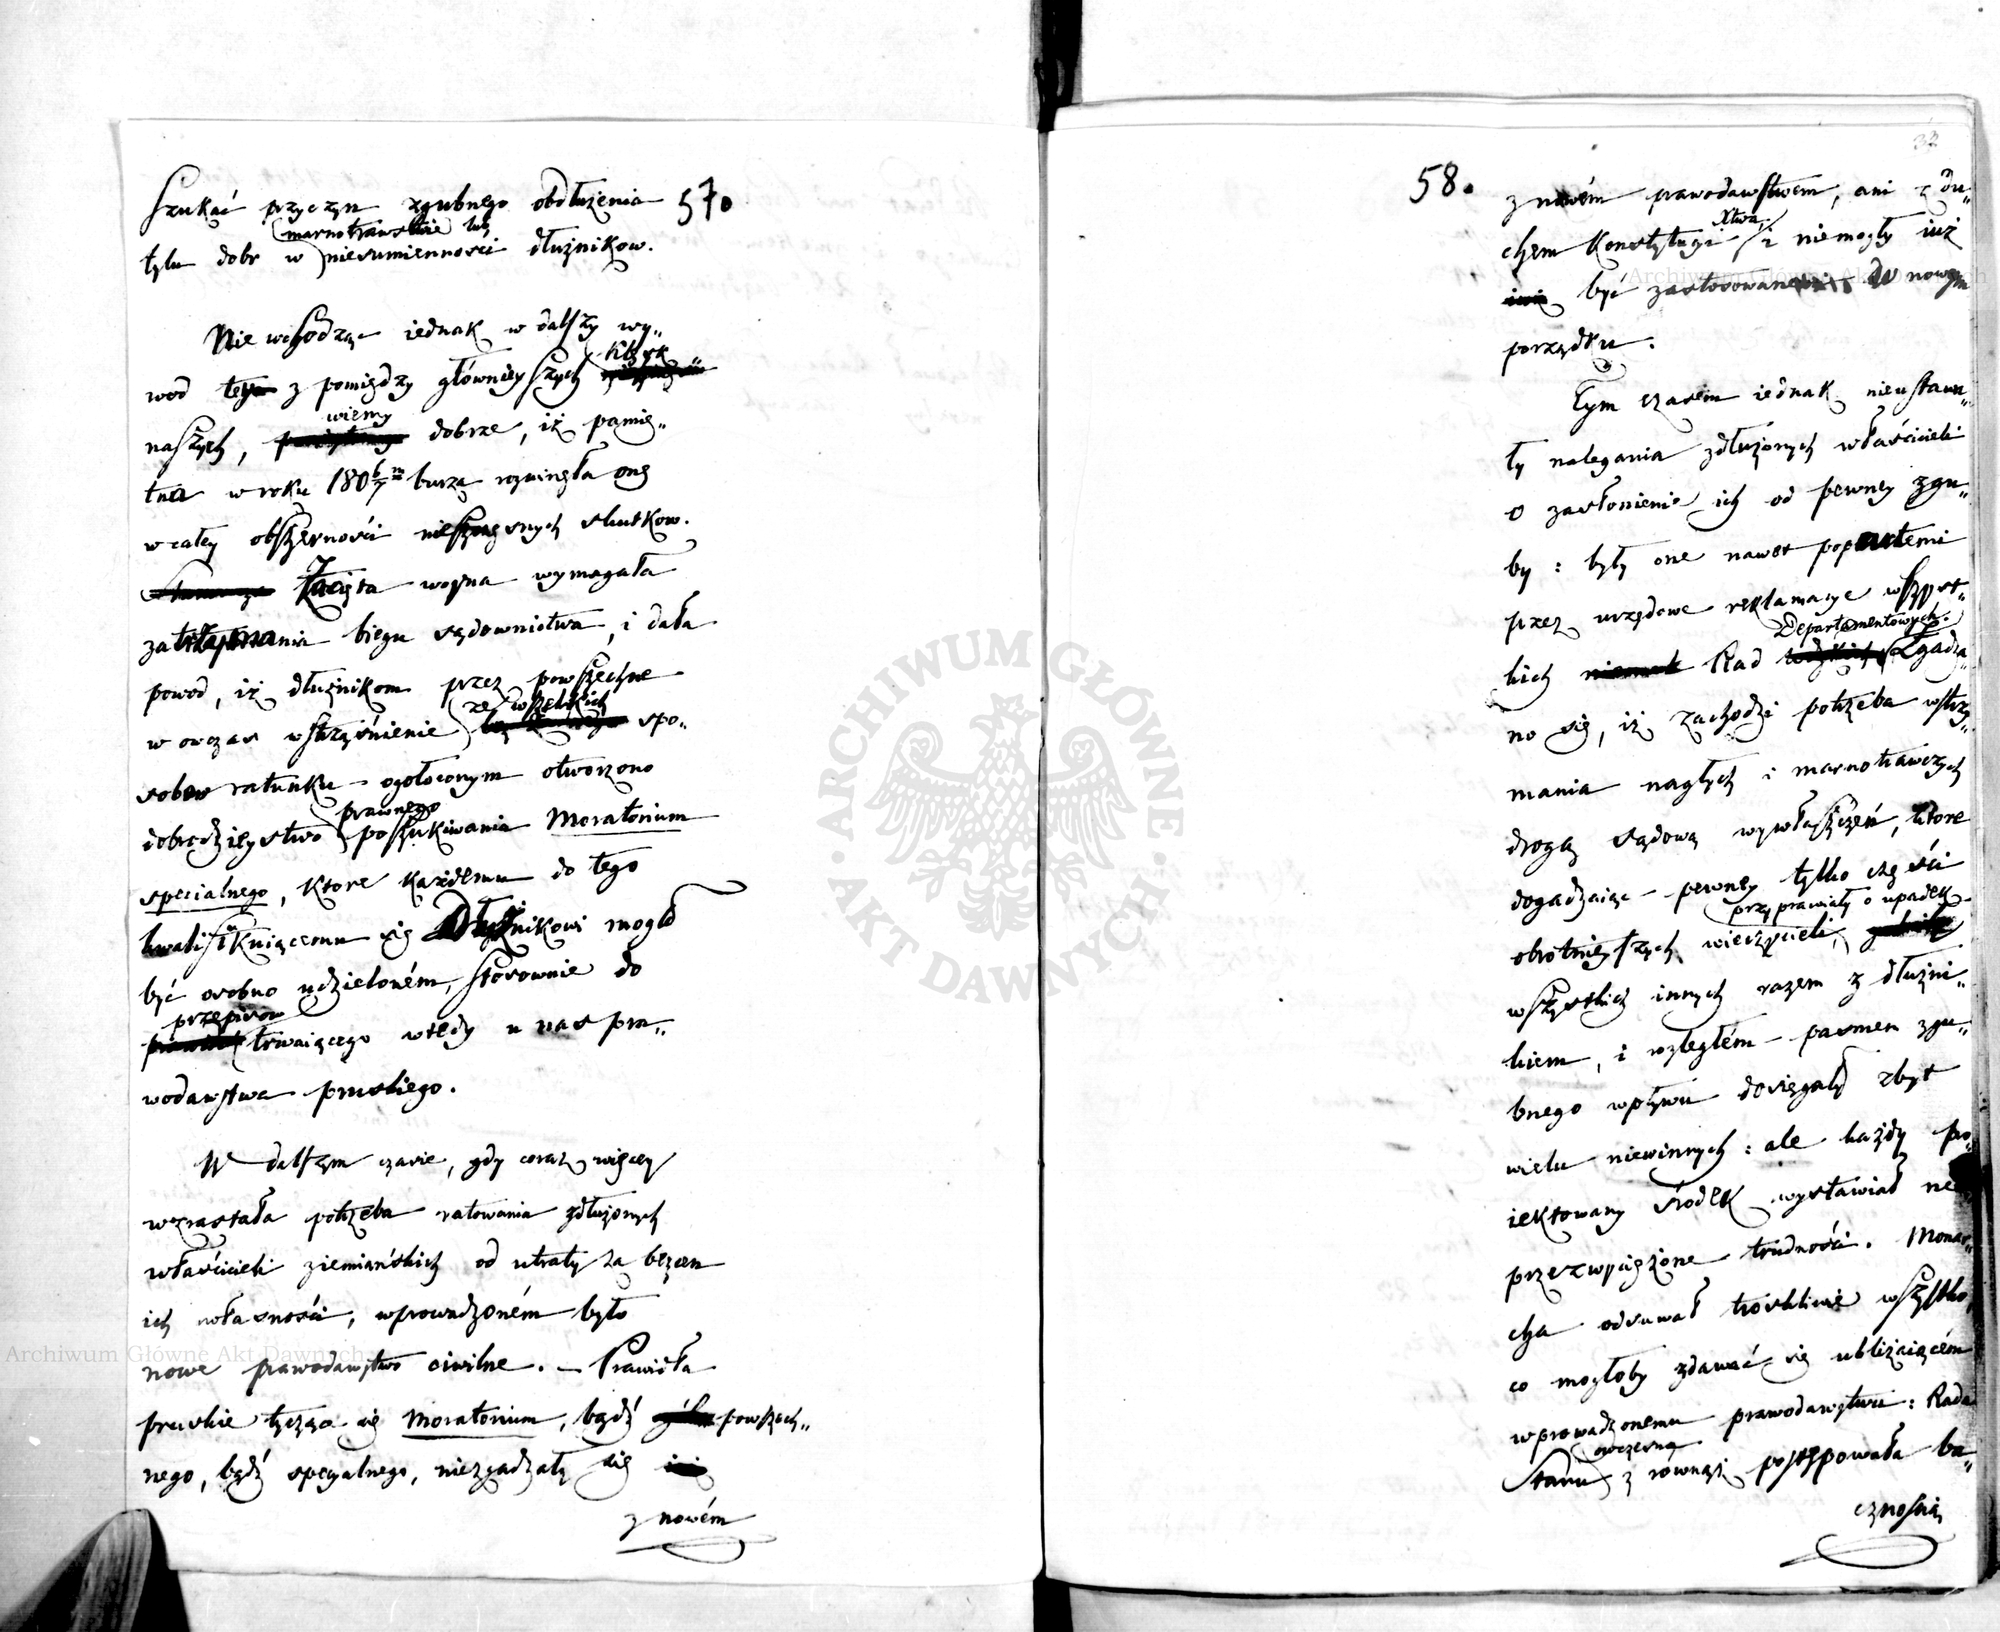 57.
szukać przyczyn zgubnego obdłużenia
marnotrawstwie lub
tylu dobr w niesumienności dłużnikow.
Nie wchodząc iednak w dalszy wy„
klęsk
wod z pomiędzy głównieyszych
wiemy
naszych, dobrze, iż pamię„
tna w roku 1806/7m burza rozwinęła onę
w całey obszerności nieszczęsnych skutkow.
Zacięta woyna wymagała
zatrzymania biegu sądownictwa, i dała
powod, iż dłużnikom przez powszechne
ze wszelkich
wowczas wstrząśnienie spo„
sobow ratunku ogołoconym otworzono
prawnego
dobrodzieystwo poszukiwania Moratorium
specialnego, ktore każdemu do tego
kwalifikuiącemu się Dłużnikowi mogło
być osobno udzieloném, stosownie do
przepisow
trwaiącego wtedy u nas pra„
wodawstwa pruskiego.
W dalszym czasie, gdy coraz więcey
wzrastała potrzeba ratowania zdłużonych
właścicieli ziemiańskich od utraty za bezcen
ich własności, wprowadzoném było
nowe prawodawstwo civilne. — Prawidła
pruskie tyczące się Moratorium, bądź powszech„
nego, bądź specyalnego, niezgadzały się
z nowém
58.
z nowém prawodawstwem, ani z du„
Xtwa
chem Konstytucyi i niemogły iuż
być zastosowane do nowego
porządku.
Tym czasem iednak nieustawa„
ły nalegania zdłużonych właścicieli
o zasłonienie ich od pewney zgu„
by: były one nawet popartemi
przez urzędowe reklamacye wszyst„
Departamentowych.
kich Rad Zgadza„
no się, iż zachodzi potrzeba wstrzy„
mania nagłych i marnotrawczych
drogą sądową wywłaszczeń, ktore
dogadzaiąc pewney tylko części
przyprawiały o upadek
obrotnieyszych wierzycieli,
wszystkich innych razem z dłużni„
kiem, i rozległém pasmem zgu„
bnego wpływu dosięgały zbyt
wielu niewinnych: ale każdy pro„
iektowany środek wystawiał nie
przezwyciężone trudności. Monar„
cha odsuwał troskliwie wszystko,
co mogłoby zdawać się ubliżaiącém
wprowadzonemu prawodawstwu: Rada
owczesna
Stanu z równąż postępowała ba„
cznością